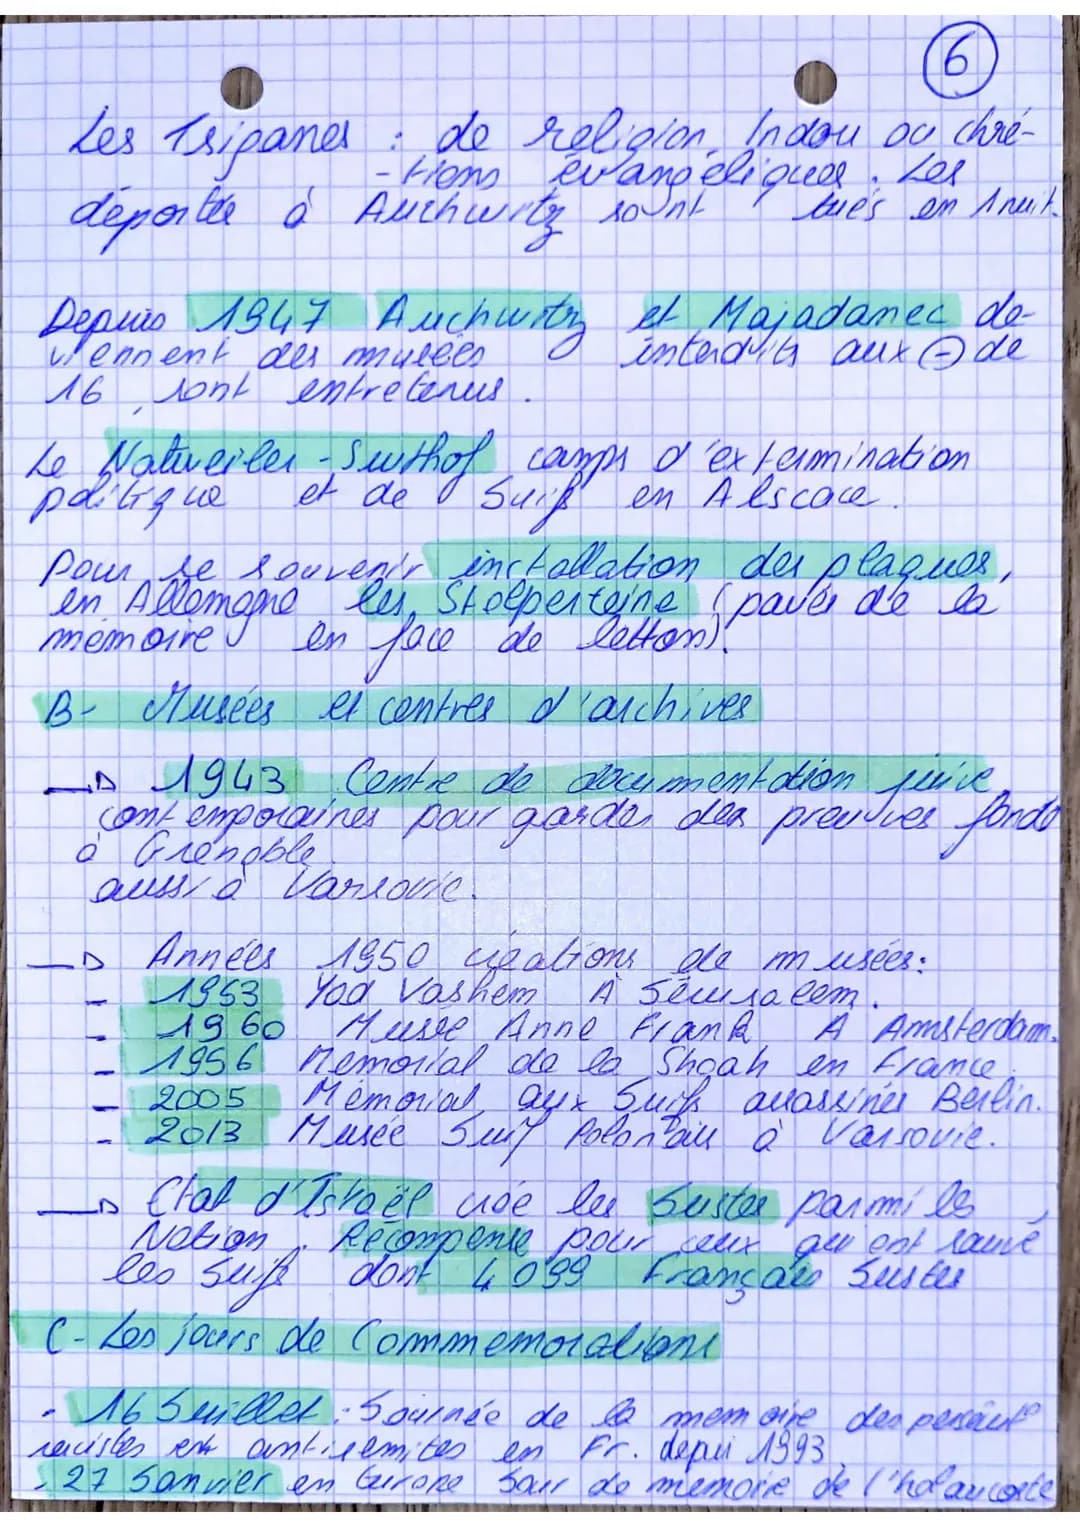 6
Les Tsiganes : de religion Indou ou chré-
-tiens évangéliques. Les
déportés à Auchwitz sount tués en 1 nuit.
Depuis 1947 Auchwitz et Majadanec de-
viennent des musées interdits aux (-) de
16, sont entretenus.
Le Natweiler-Suthof camps d'extermination
politique et de Juifs en Alscace.
Pour se souvenir installation des plaques,
en Allemagne les Stolpersteine (pavés de la
mémoire en face de letton).
B- Musées et centres d'archives
→ 1943 Centre de documentation juive
contemporaines pour garder des preuves fondé
à Grenoble
aussi à Varsovie.
→ Années 1950 créations de musées:
- 1953 Yad Vashem A Jérusalem.
- 1960 Musée Anne Frank A Amsterdam.
- 1956 Memorial de la Shoah en France.
- 2005 Mémorial aux Juifs assassinés Berlin.
- 2013 Musée Juif Polonais à Varsovie.
→ Etat d'Israël crée les Justes parmi les
Nation. Récompense pour ceux qui ont sauvé
les Juifs dont 4 099 Français Justes
C- Les jours de Commémorations
- 16 Juillet : Journée de la mémoire des perséut°
racistes et antisemites en Fr. depui 1993
- 27 Janvier en Europe Jour de mémoire de l'holaucoste